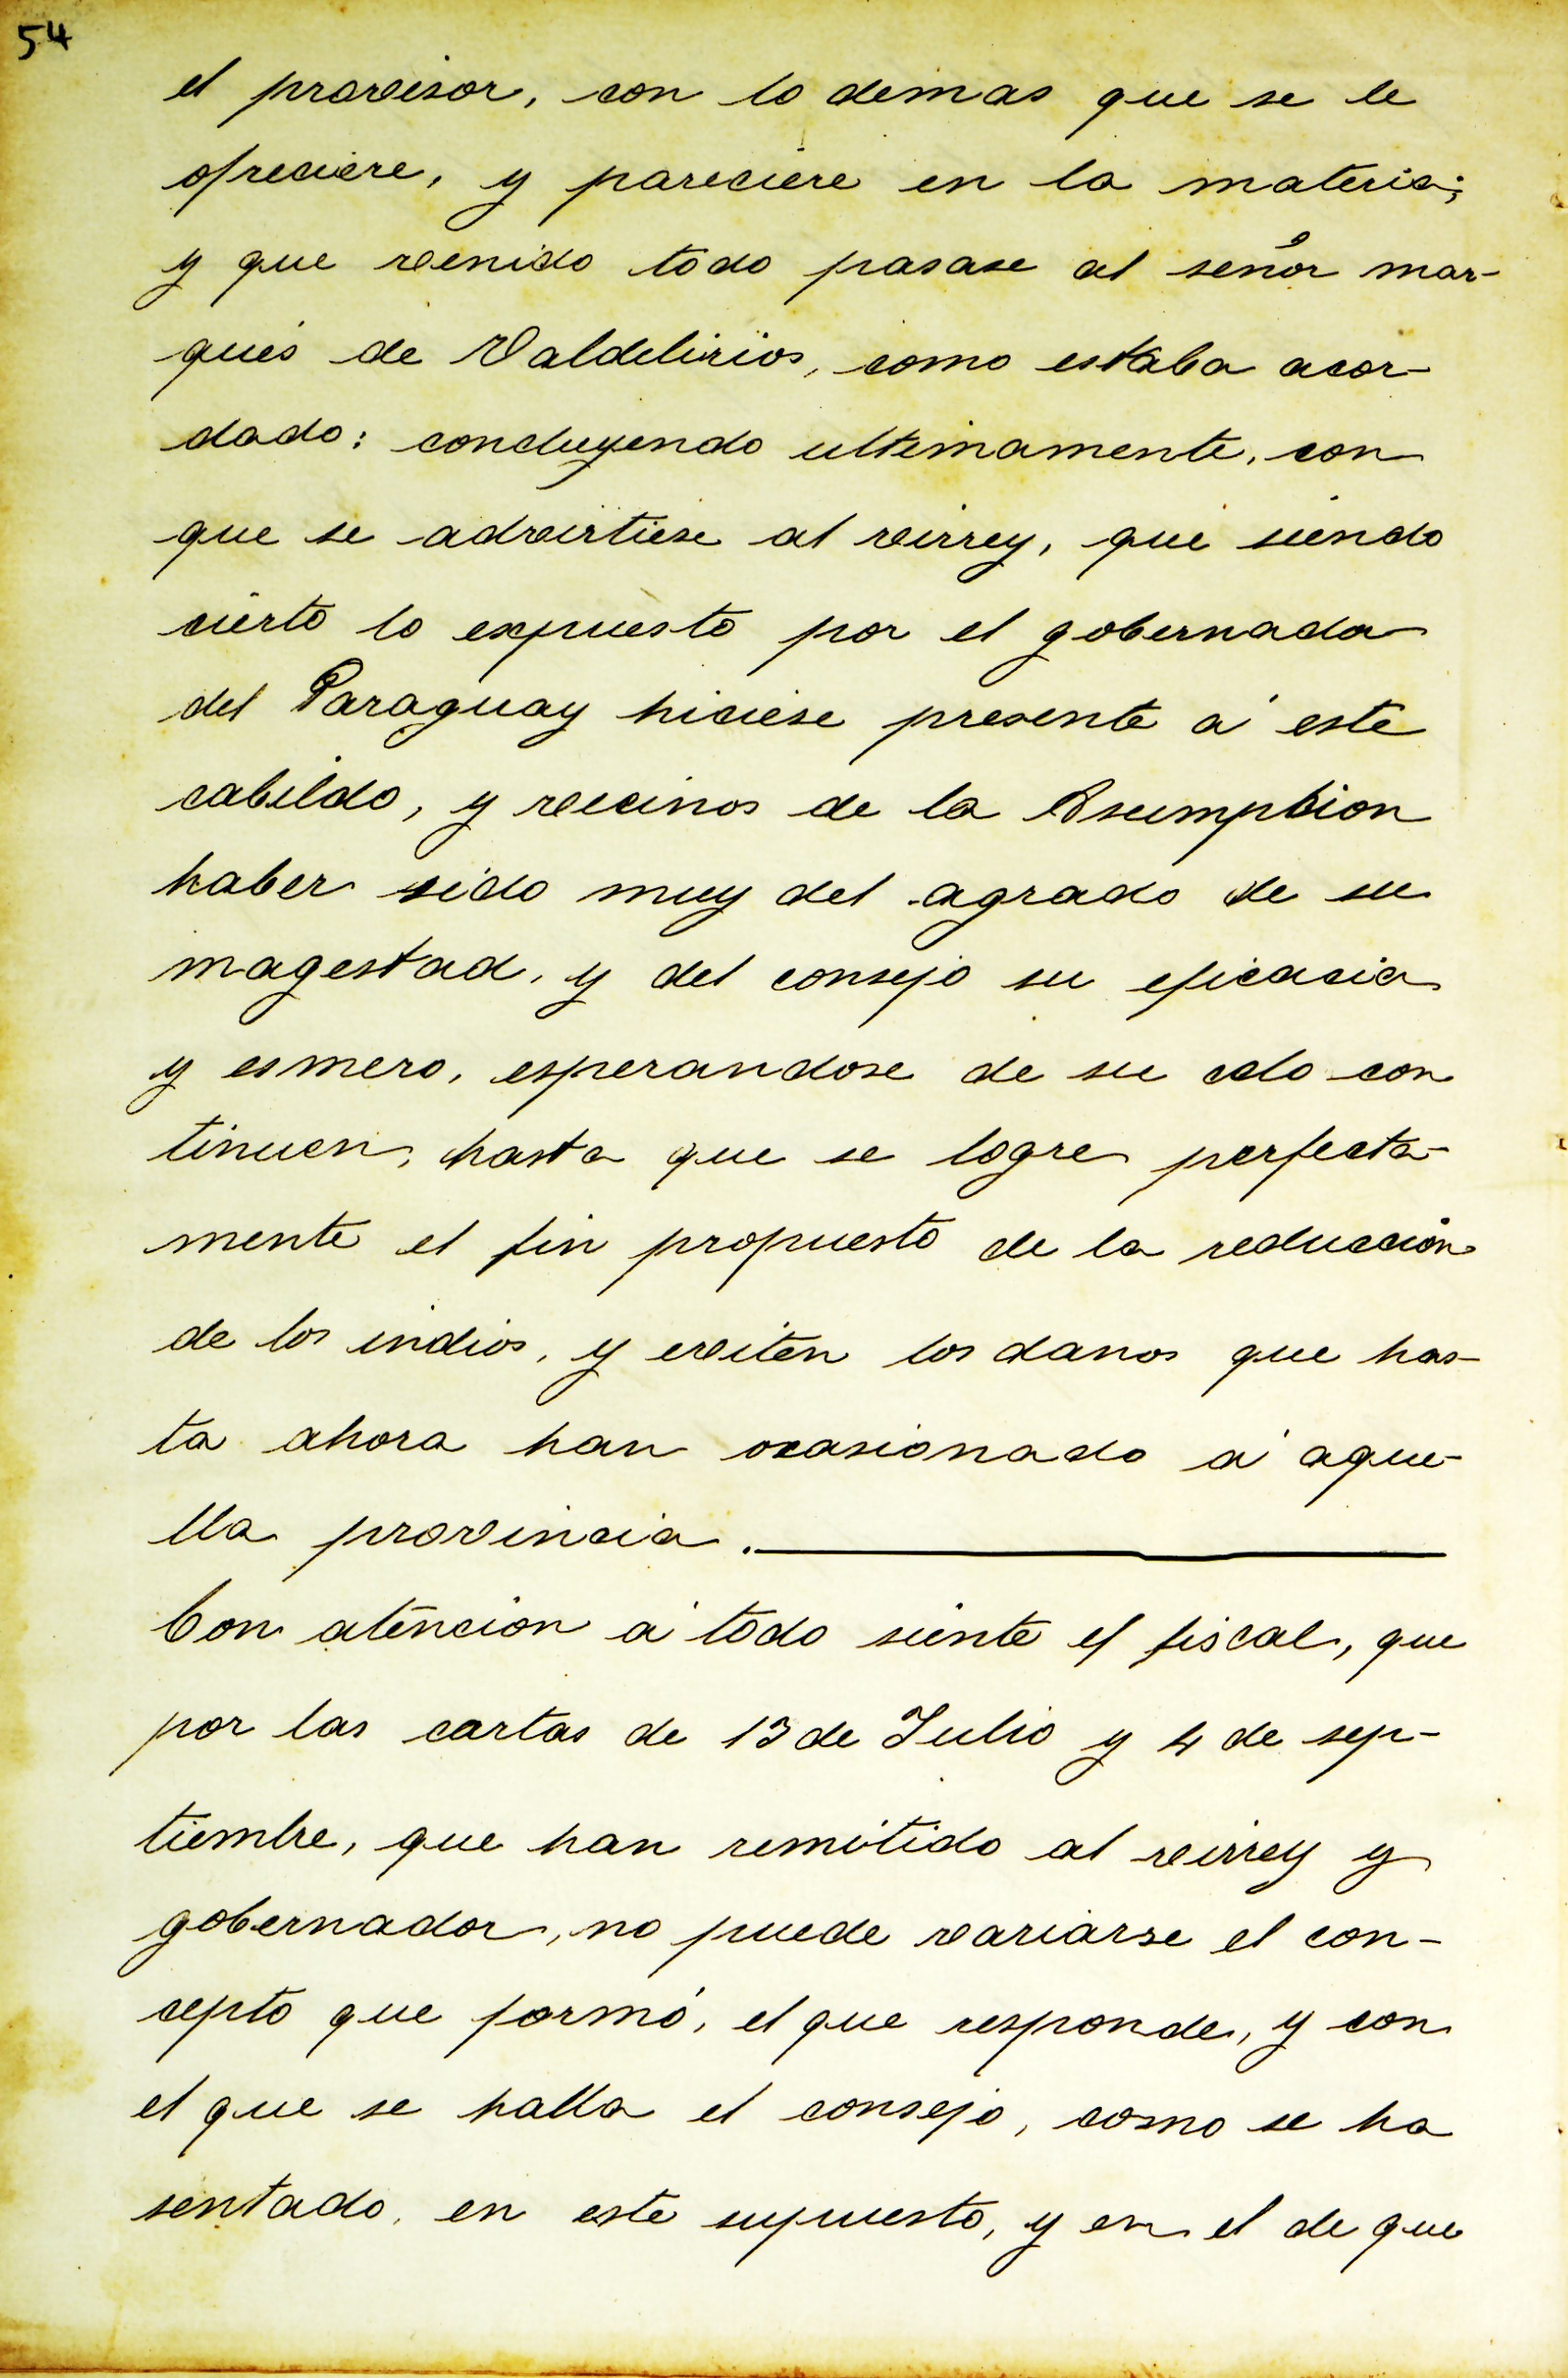 54
el provisor, con lo demas que se le
ofreciere, y pareciere en la materia;
y que venido todo pasase al señor mar-
qués de Valdelirios, como estaba acor-
dado: concluyendo ultimamente, con
que se advirtiese al virrey, que siendo
cierto lo expuesto por el gobernador
del Paraguay hiciese presente á este
cabildo, y vecinos de la Asumpcion
haber sido muy del agrado de su
magestad, y del consejo su eficacia
y esmero, esperandose de su celo con
tinuen, hasta que se logre perfecta-
mente el fin propuesto de la reduccion
de los indios, y eviten los danos que has-
ta ahora han ocasionado á aque-
lla provincia.
Con atencion á todo siente el fiscal, que
por las cartas de 13 de Julio y 4 de sep-
tiembre, que han remitido al virrey y
gobernador, no puede variarse el con-
cepto que formó, el que responde, y con
el que se halla el consejo, como se ha
sentado, en este supuesto, y en el de que